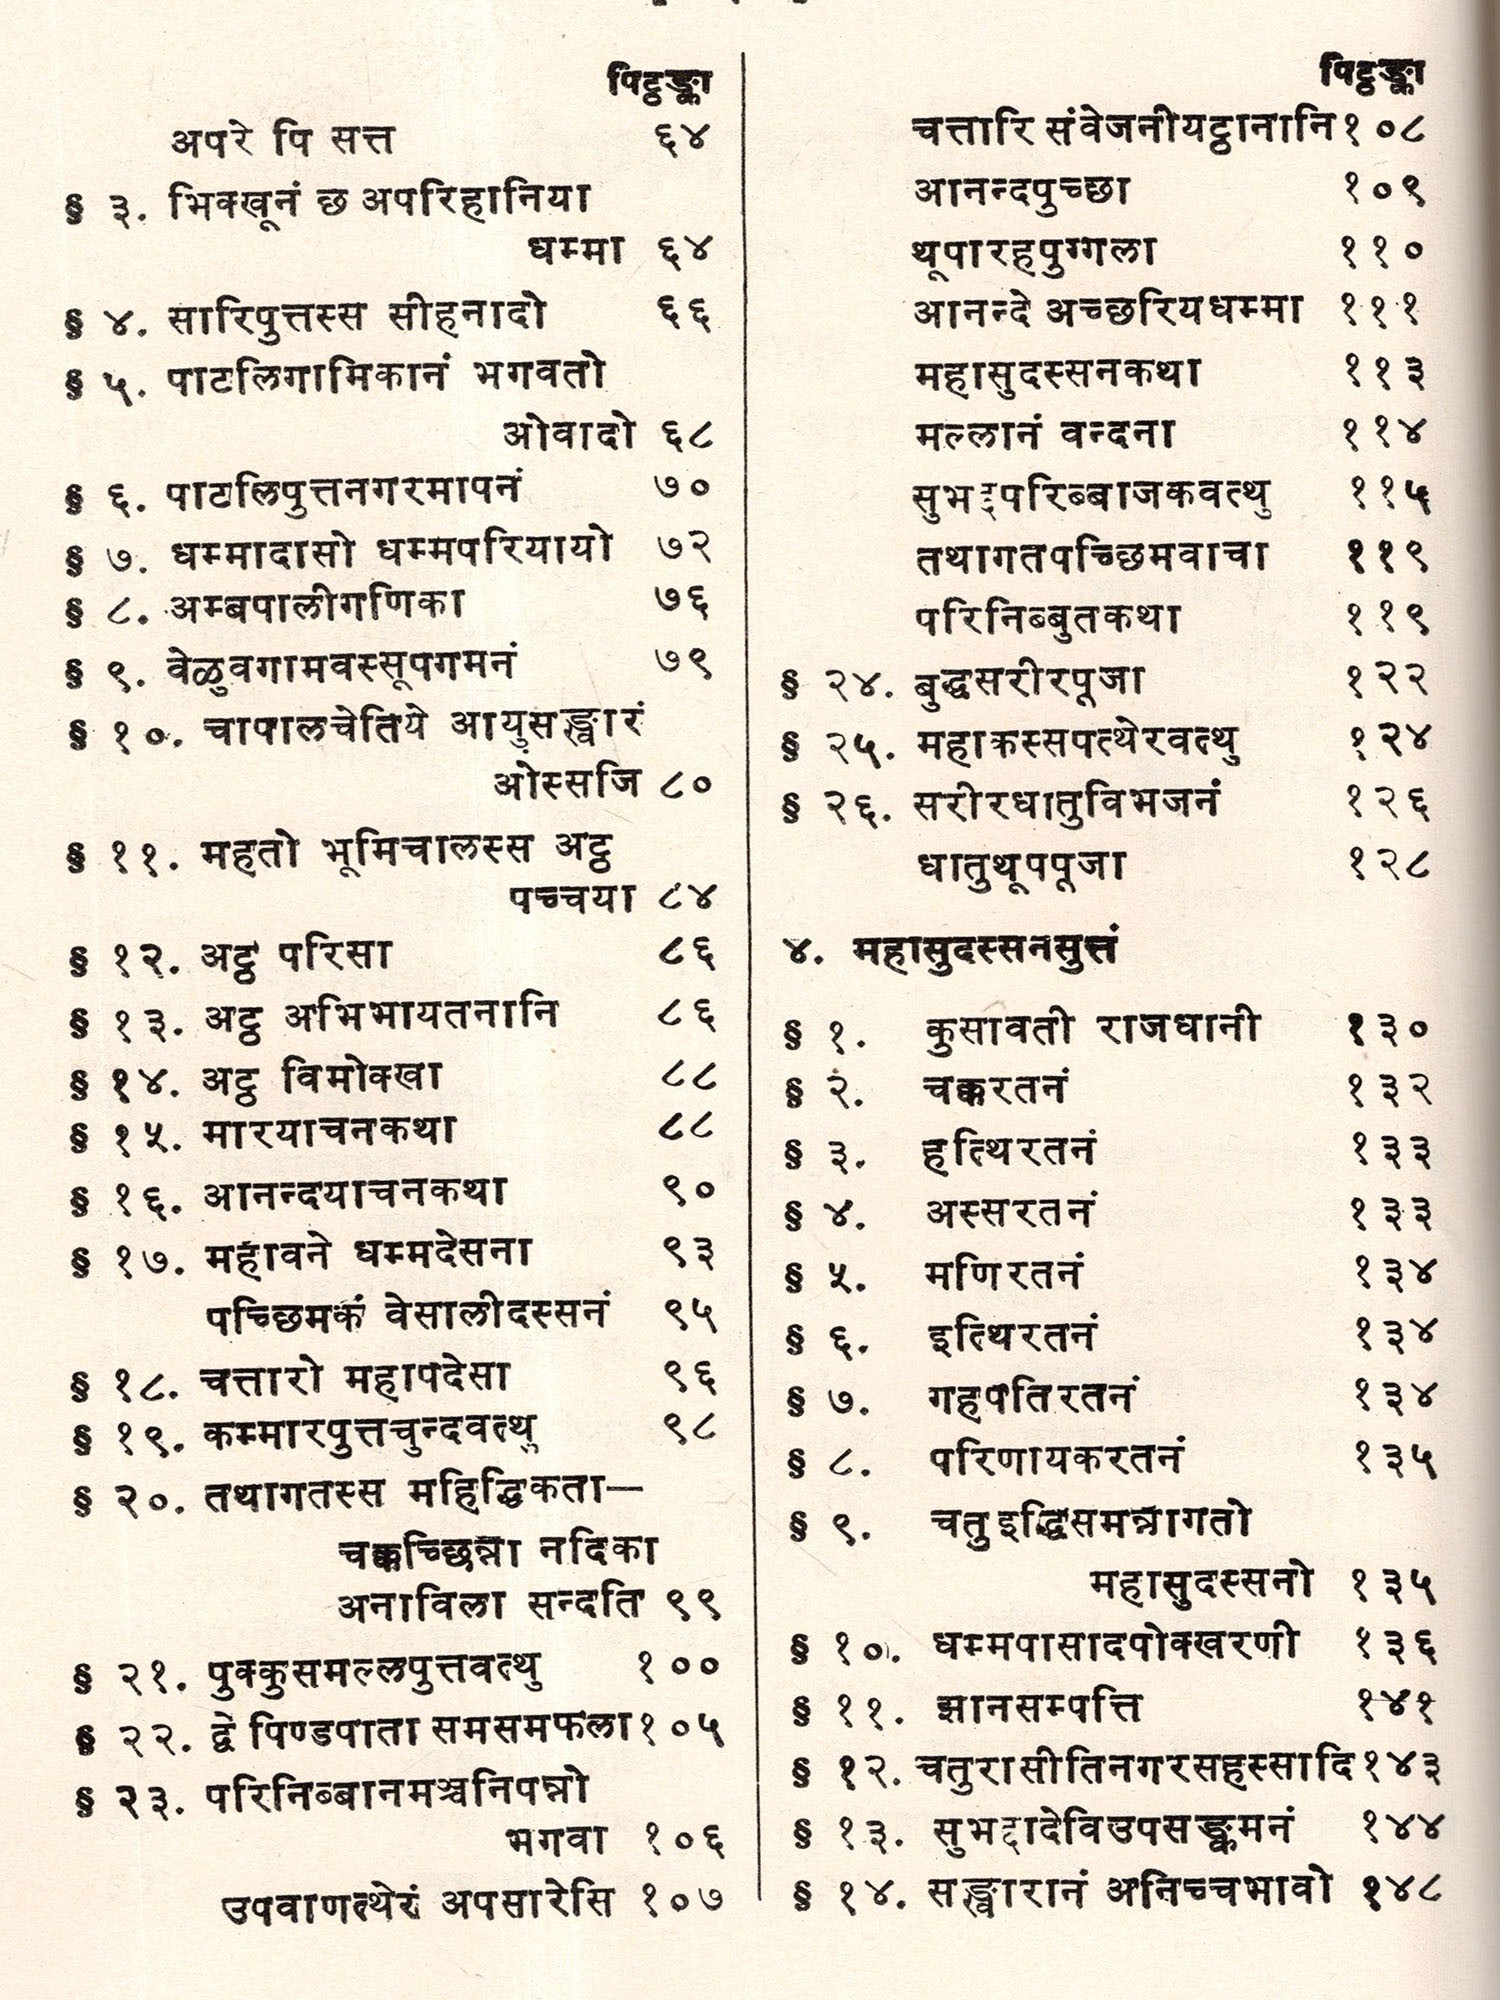 पिट्ठङ्का
अपरे पि सत्त ६४
§ ३. भिक्खूनं छ अपरिहानिया
धम्मा ६४
§ ४. सारिपुत्तस्स सीहनादो ६६
§ ५. पाटलिगामिकानं भगवतो
ओवादो ६८
§ ६. पाटलिपुत्तनगरमापनं ७०
§ ७. धम्मादासो धम्मपरियायो ७२
§ ८. अम्बपालीगणिका ७६
§ ९. वेळुवगामवस्सूपगमनं ७९
§ १०. चापालचेतिये आयुसङ्खारं
ओस्सजि ८०
§ ११. महतो भूमिचालस्स अट्ठ
पच्चया ८४
§ १२. अट्ठ परिसा ८६
§ १३. अट्ठ अभिभायतनानि ८६
§ १४. अट्ठ विमोक्खा ८८
§ १५. मारयाचनकथा ८८
§ १६. आनन्दयाचनकथा ९०
§ १७. महावने धम्मदेसना ९३
पच्छिमकं वेसालीदस्सनं ९५
§ १८. चत्तारो महापदेसा ९६
§ १९. कम्मारपुत्तचुन्दवत्थु ९८
§ २०. तथागतस्स महिद्धिकता—
चक्कच्छिन्ना नदिका
अनाविला सन्दति ९९
§ २१. पुक्कुसमल्लपुत्तवत्थु १००
§ २२. द्वे पिण्डपाता समसमफला १०५
§ २३. परिनिब्बानमञ्चनिपन्नो
भगवा १०६
उपवाणत्थेरं अपसारेसि १०७
पिट्ठङ्का
चत्तारि संवेजनीयट्ठानानि १०८
आनन्दपुच्छा १०९
थूपारहपुग्गला ११०
आनन्दे अच्छरियधम्मा १११
महासुदस्सनकथा ११३
मल्लानं वन्दना ११४
सुभद्दपरिब्बाजकवत्थु ११५
तथागतपच्छिमवाचा ११९
परिनिब्बुतकथा ११९
§ २४. बुद्धसरीरपूजा १२२
§ २५. महाकस्सपत्थेरवत्थु १२४
§ २६. सरीरधातुविभजनं १२६
धातुथूपपूजा १२८
४. महासुदस्सनसुत्तं
§ १. कुसावती राजधानी १३०
§ २. चक्करतनं १३२
§ ३. हत्थिरतनं १३३
§ ४. अस्सरतनं १३३
§ ५. मणिरतनं १३४
§ ६. इत्थिरतनं १३४
§ ७. गहपतिरतनं १३४
§ ८. परिणायकरतनं १३५
§ ९. चतुइद्धिसमन्नागतो
महासुदस्सनो १३५
§ १०. धम्मपासादपोक्खरणी १३६
§ ११. झानसम्पत्ति १४१
§ १२. चतुरासीतिनगरसहस्सादि १४३
§ १३. सुभद्दादेविउपसङ्कमनं १४४
§ १४. सङ्खारानं अनिच्चभावो १४८